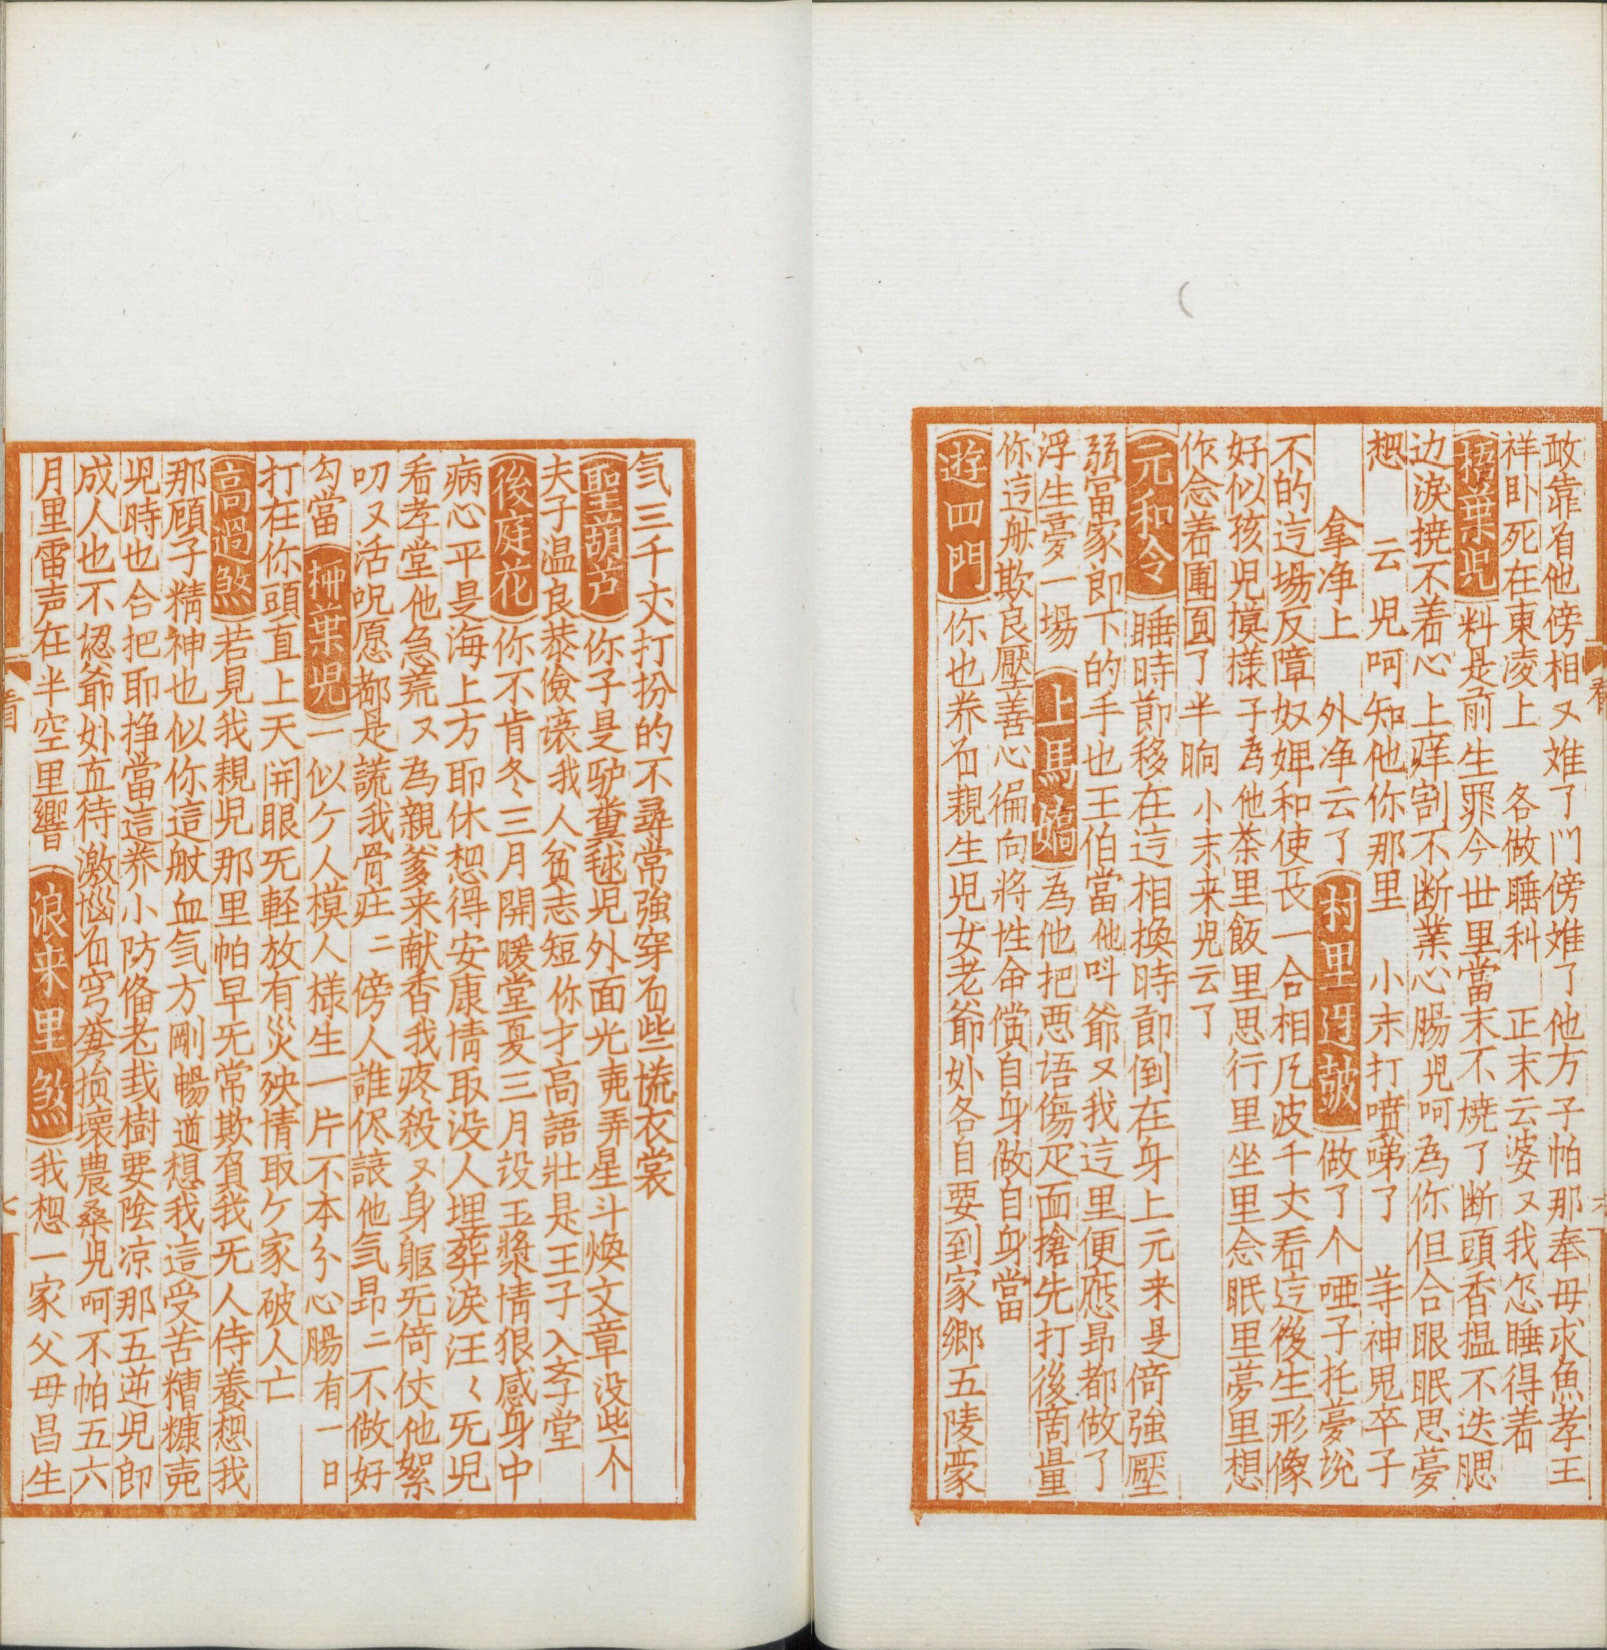 敢靠有他傍相又难了门傍难了他方子帕那奉母求魚孝王
祥卧死在東凌上　各做睡科　正末云婆又我怎睡得着
梧葉児　料是前生罪今世里當末不燒了断頭香揾不迭腮
边淚撓不着心上痒割不断業心腸児呵為你但合眼眠思夢
想　云　児呵知他你那里　小末打噴嚏了　羊神鬼卒子
拿净上　外净云了　村里迓皷　做了个哑子托夢说
不的这場反障奴婢和使長一合相几波千丈看这後生形像
好似孩児摸様子為他茶里飯里思行里坐里念眠里夢里想
作念着團圓了半晌　小末来児云了
元和令　睡時節移在这相換時節倒在身上元来是倚強壓
弱富家郎下的手也王伯當他呌爺又我这里便應昂都做了
浮生夢一場　上馬嬌　為他把悪语傷疋面搶先打後商量
你这般欺良壓善心徧向將性命償自身做自身當
遊四門　你也养着親生児女老爺处各自要到家郷五陵豪
気三千丈打扮的不尋常強穿着些慌衣裳
聖葫芦　你子是驴糞毬児外面光卖弄星斗焕文章没些个
夫子温良恭儉讓我人貧志短你才高語壯是王子入孝子堂
後庭花　你不肯冬三月開暖堂夏三月設玉漿情狠感身中
病心平是海上方耶休想得安康情取没人埋葬淚汪〱旡児
看孝堂他急荒又為親爹来献香我疼殺又身軀旡倚仗他絮
叨又活呪愿都是謊我骨庄二傍人誰偢諒他気昂二不做好
勾當　柳葉児　一似ケ人模人様生一片不本分心腸有一日
打在你頭直上天開眼旡軽放有災殃情取ケ家破人亡
高過煞　若見我親児那里帕早旡常欺負我旡人侍養想我
那頋子精神也似你這般血気方剛暢道想我這受苦糟糠卖
児時也合把耶挣當這养小防俻老栽樹要陰凉那五逆児郎
成人也不認爺处直待激惱着穹蒼損壞農桑児呵不帕五六
月里雷声在半空里響　浪来里煞　我想一家父母昌生